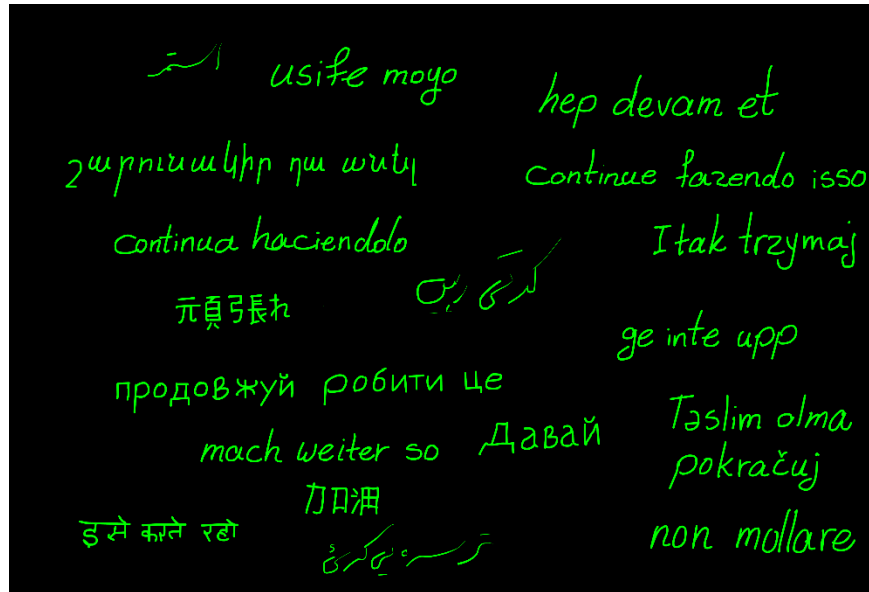 استمر
usife moyo
hep devam et
Շարունակիր դա անել
continue fazendo isso
continua haciendolo
I tak trzymaj
کرتے رہیں
元頁弓長れ
ge inte upp
продовжуй робити це
Təslim olma
mach weiter so
Давай
pokračuj
加油
इसे करते रहो
non mollare